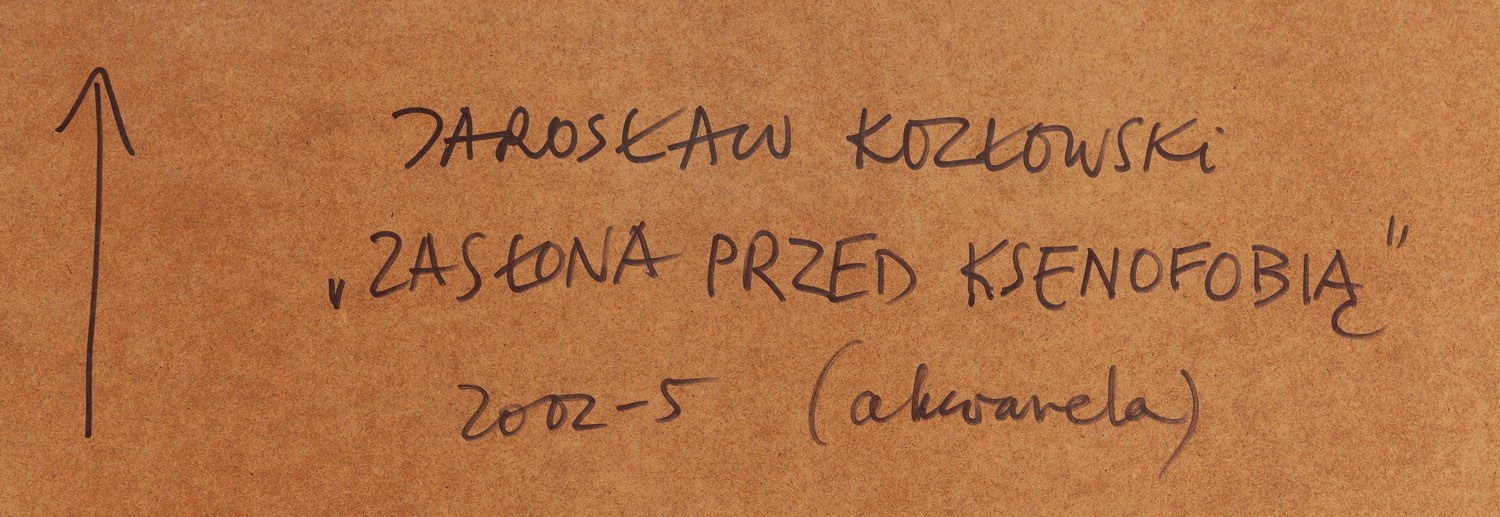 JAROSŁAW KOZŁOWSKi
„ZASŁONA PRZED KSENOFOBIĄ"
2002-5 (akwarela)